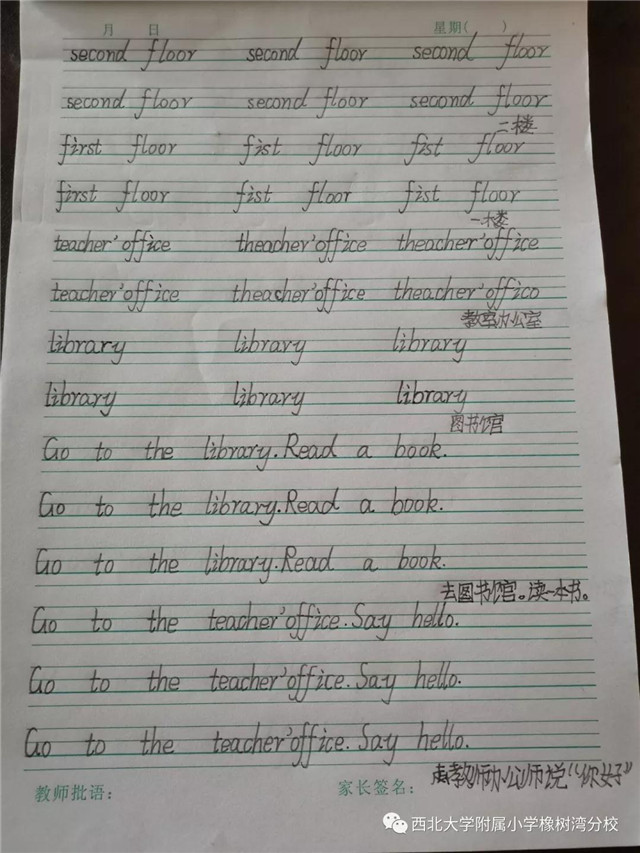 月 日 星期( )
second floor second floor second floor
second floor second floor second floor
二楼
first floor fist floor fist floor
first floor fist floor fist floor
一楼
teacher'office theacher'office theacher'office
teacher'office theacher'office theacher'offico
教室办公室
library library library
library library library
图书馆
Go to the library. Read a book.
Go to the library. Read a book.
Go to the library. Read a book.
去图书馆。读一本书。
Go to the teacher'office. Say hello.
Go to the teacher'office. Say hello.
Go to the teacher'office. Say hello.
教师办公师说“你好”
教师批语: 家长签名:
西北大学附属小学橡树湾分校